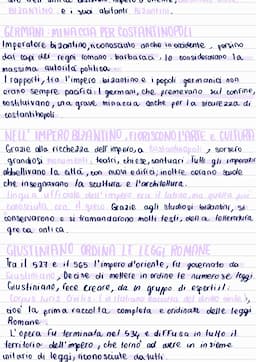 BIZANTINO e i suoi abitanti Bizantini.
GERMANI: MINACCIA PER COSTANTINOPOLI
Imperatore bizantino, riconosciuto anche in occidente, persino
dai capi dei regni romano barbarici: lo consideravano la
massima autorità politica.
I rapporti, tra l'impero bizantino e i popoli germanici non
erano sempre pacifici: i germani, che premevano sui confini,
costituivano, una grave minaccia anche per la sicurezza di
costantinopoli.
NELL' IMPERO BIZANTINO, FIORISCONO L'ARTE e CULTURA
Grazie alla ricchezza dell'impero, a Costantinopoli, sorsero
grandiosi monumenti, teatri, chiese, santuari. Tutti gli imperatori
abbellivano la città, con nuovi edifici, inoltre c'erano scuole
che insegnavano la scultura e l'architettura.
Lingua ufficiale dell'impero era il latino, ma quella più
conosciuta era il greco. Grazie agli studiosi bizantini, si
conservarono e si tramandarono molti testi, della letteratura
greca antica.
GIUSTINIANO ORDINA LE LEGGI ROMANE
Tra il 527 e il 565 l'impero d'oriente, fu governato da
Giustiniano. Decise di mettere in ordine le numerose leggi.
Giustiniano, fece creare, da un gruppo di esperti il
Corpus Iuris Civilis
cioè la prima raccolta completa e ordinata delle leggi
Romane.
L'opera fu terminata nel 534 e diffusa in tutto il
territorio dell'impero, che tornò ad avere un insieme
unitario di leggi, riconosciute da tutti.